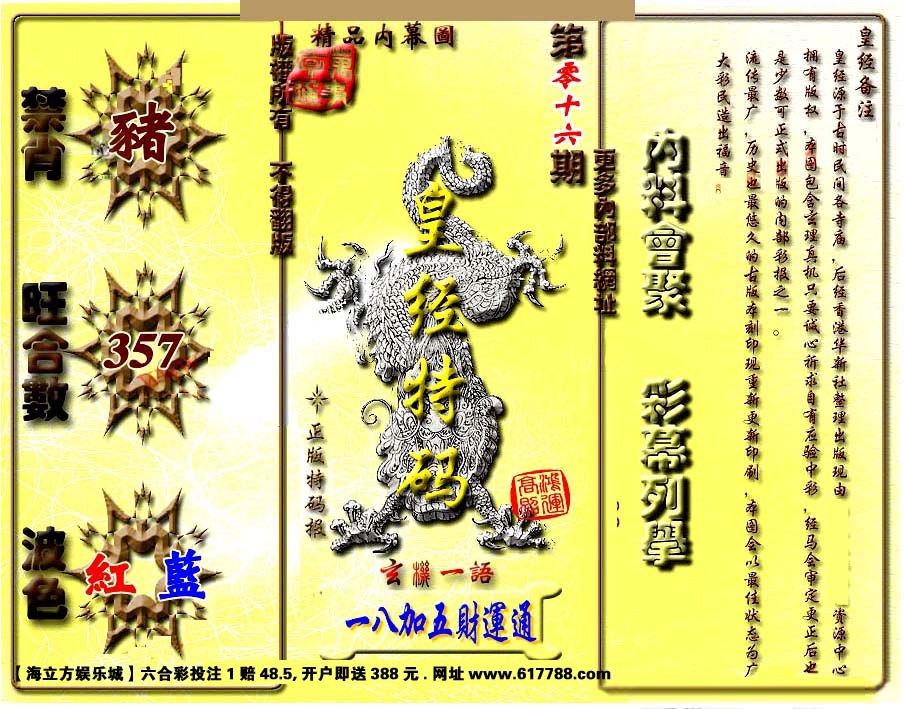 禁肖
豬
旺合數
357
波色
紅 藍
版權所有 不得翻版
精品内幕圖
第零十六期
更多内部料網址
皇经特码
正版特码报
鴻運高照
玄機一語
一八加五財運通
内料會聚 彩幕列舉
皇经备注
皇经源于古时民间各寺庙,后经香港华新社整理出版现由 资源中心
拥有版权,本图包含玄理真机只要诚心祈求自有应验中彩,经马会审定更正后也
是少数可正式出版的内部彩报之一。
流传最广,历史也最悠久的古版本刻印现重新更新印刷,本图会以最佳状态为广
大彩民造出福音
【海立方娱乐城】六合彩投注1赔48.5,开户即送388元.网址www.617788.com